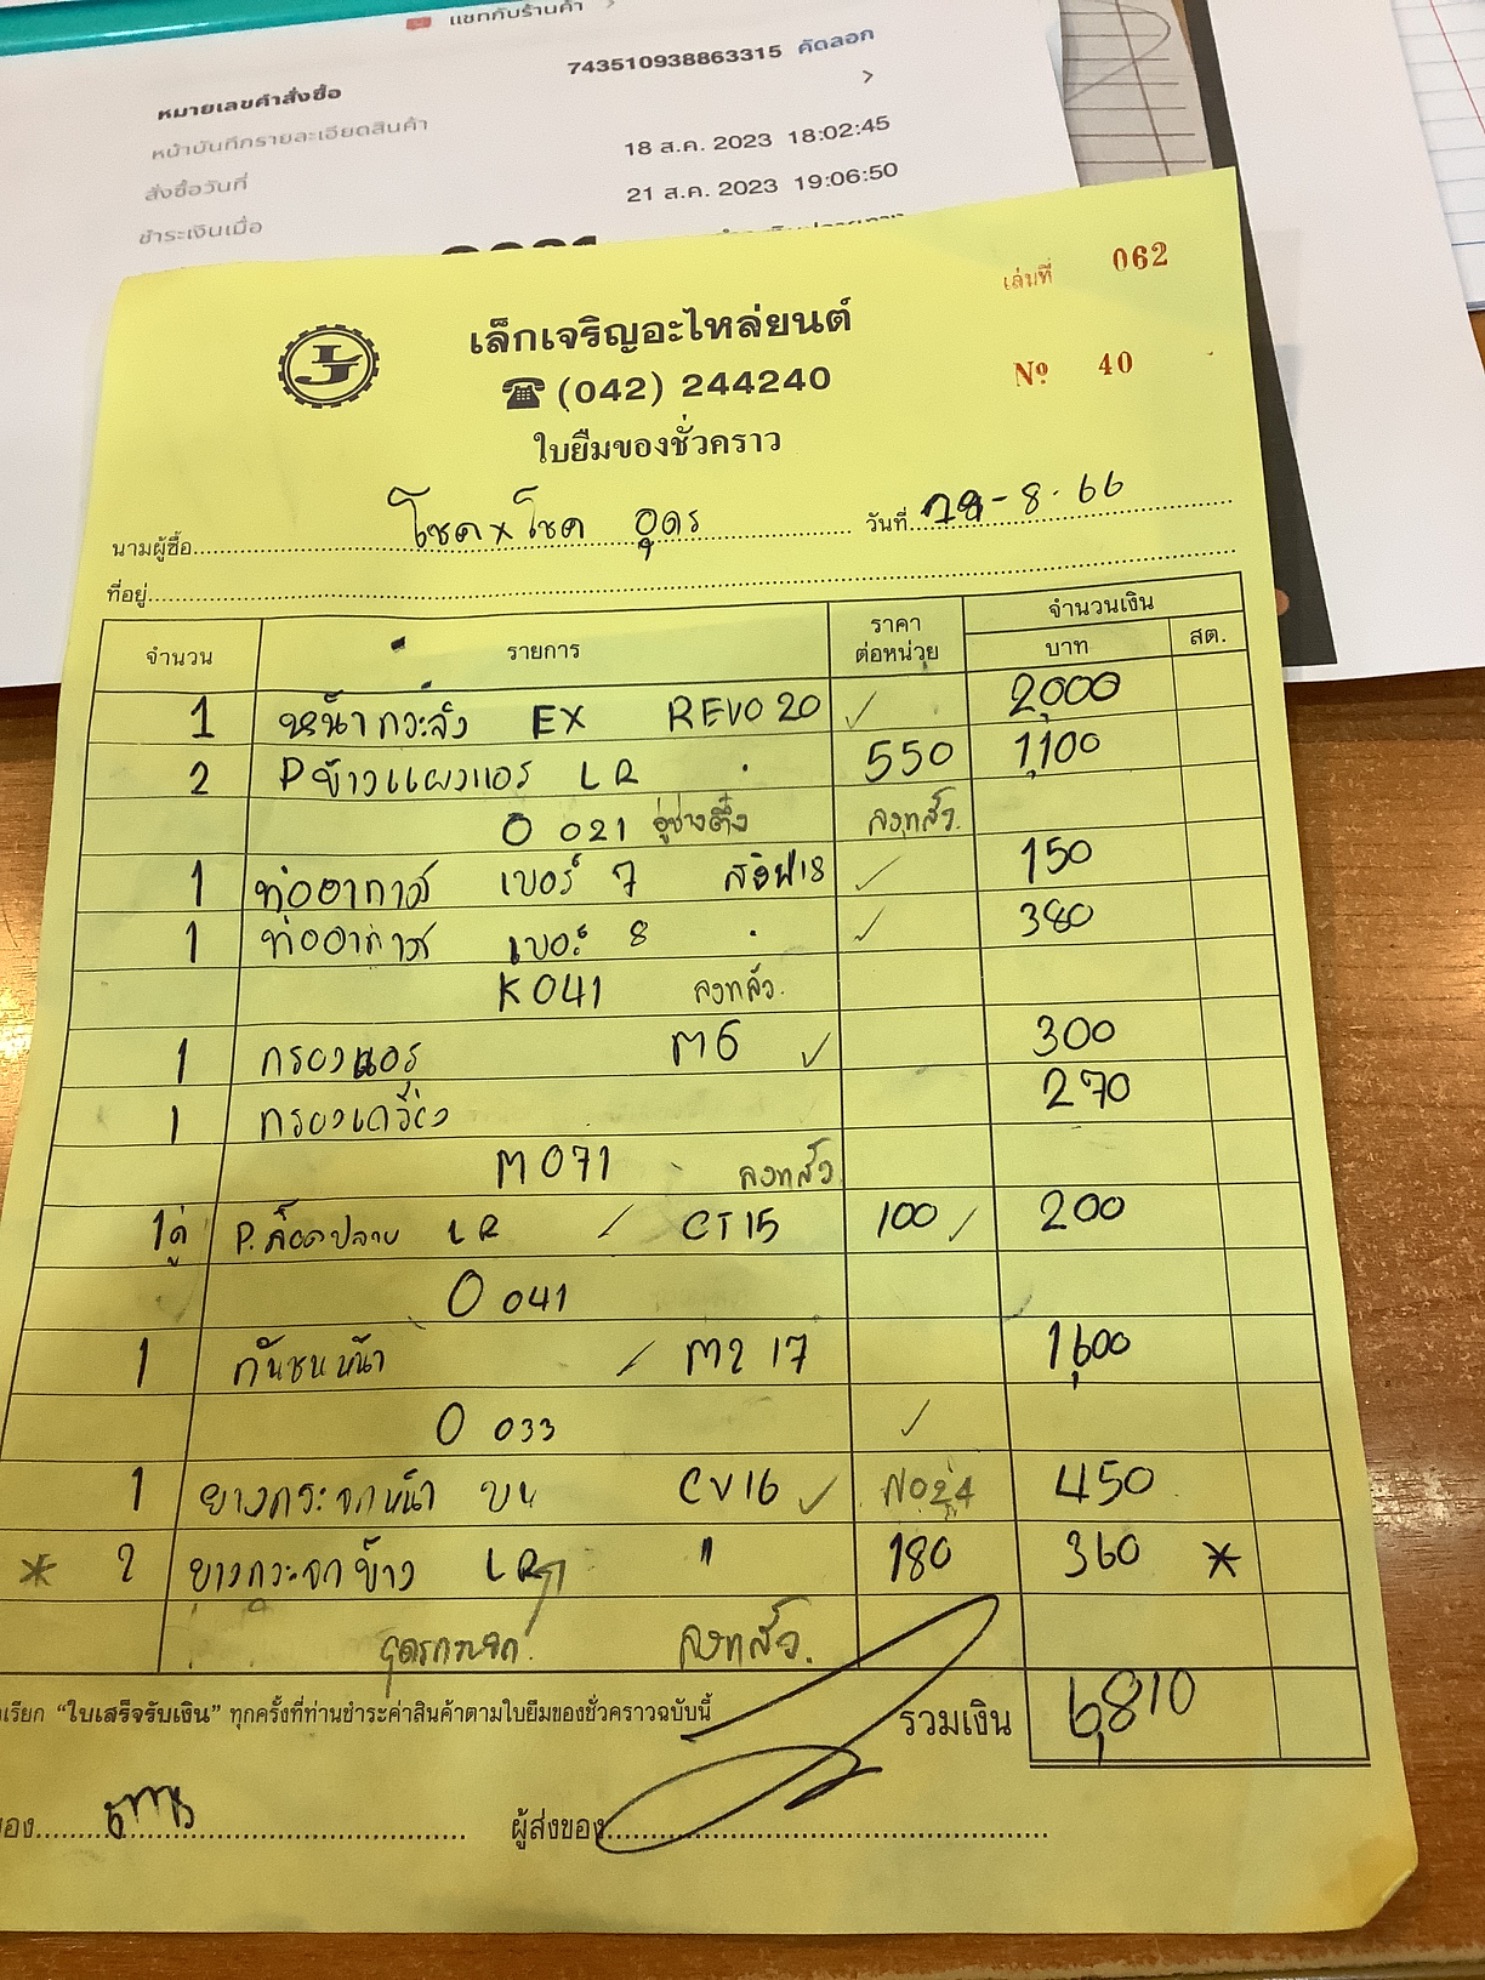 แชทกับร้านค้า >
หมายเลขคำสั่งซื้อ 743510938863315 คัดลอก
หน้าบันทึกรายละเอียดสินค้า >
สั่งซื้อวันที่ 18 ส.ค. 2023 18:02:45
ชำระเงินเมื่อ 21 ส.ค. 2023 19:06:50
เล่มที่ 062
เล็กเจริญอะไหล่ยนต์
☎ (042) 244240
Nº 40
ใบยืมของชั่วคราว
นามผู้ซื้อ โชค x โชค อุดร วันที่ -8-66
ที่อยู่
จำนวน รายการ ราคาต่อหน่วย จำนวนเงิน
บาท สต.
1 หน้ากระจัง EX REVO 20 ✓ 2,000
2 Pข้างแผงแอร์ LR 550 1,100
O 021 อู่ช่างตึ๋ง ลงแล้ว.
1 ท่ออากาศ เบอร์ 7 ✓ 150
1 ท่ออากาศ เบอร์ 8 ✓ 380
K041 ลงแล้ว.
1 กรองแอร์ M6 ✓ 300
1 กรองเครื่อง 270
M071 ลงแล้ว
1คู่ P.ล็อคปลาย LR / CT15 100 / 200
O 041
1 กันชนหน้า / M2 17 1,600
O 033 ✓
1 ยางกระจกหน้า บน CV16 ✓ N024 450
* 2 ยางกระจกข้าง LR " 180 360 *
อุดรกระจก. ลงแล้ว.
เรียก “ใบเสร็จรับเงิน” ทุกครั้งที่ท่านชำระค่าสินค้าตามใบยืมของชั่วคราวฉบับนี้ รวมเงิน 6,810
ของ ผู้ส่งของ